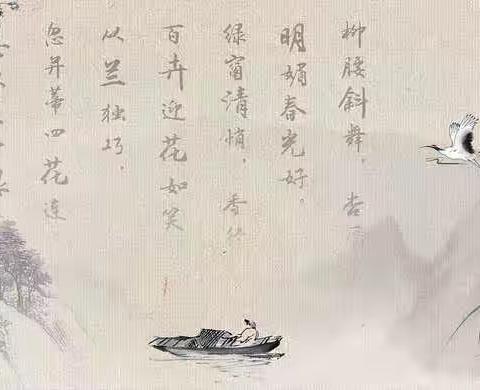 柳腰斜舞，杏
明媚春光好。
绿窗清悄，香
百卉迎花如笑
从兰独巧，
忽并蒂四花连